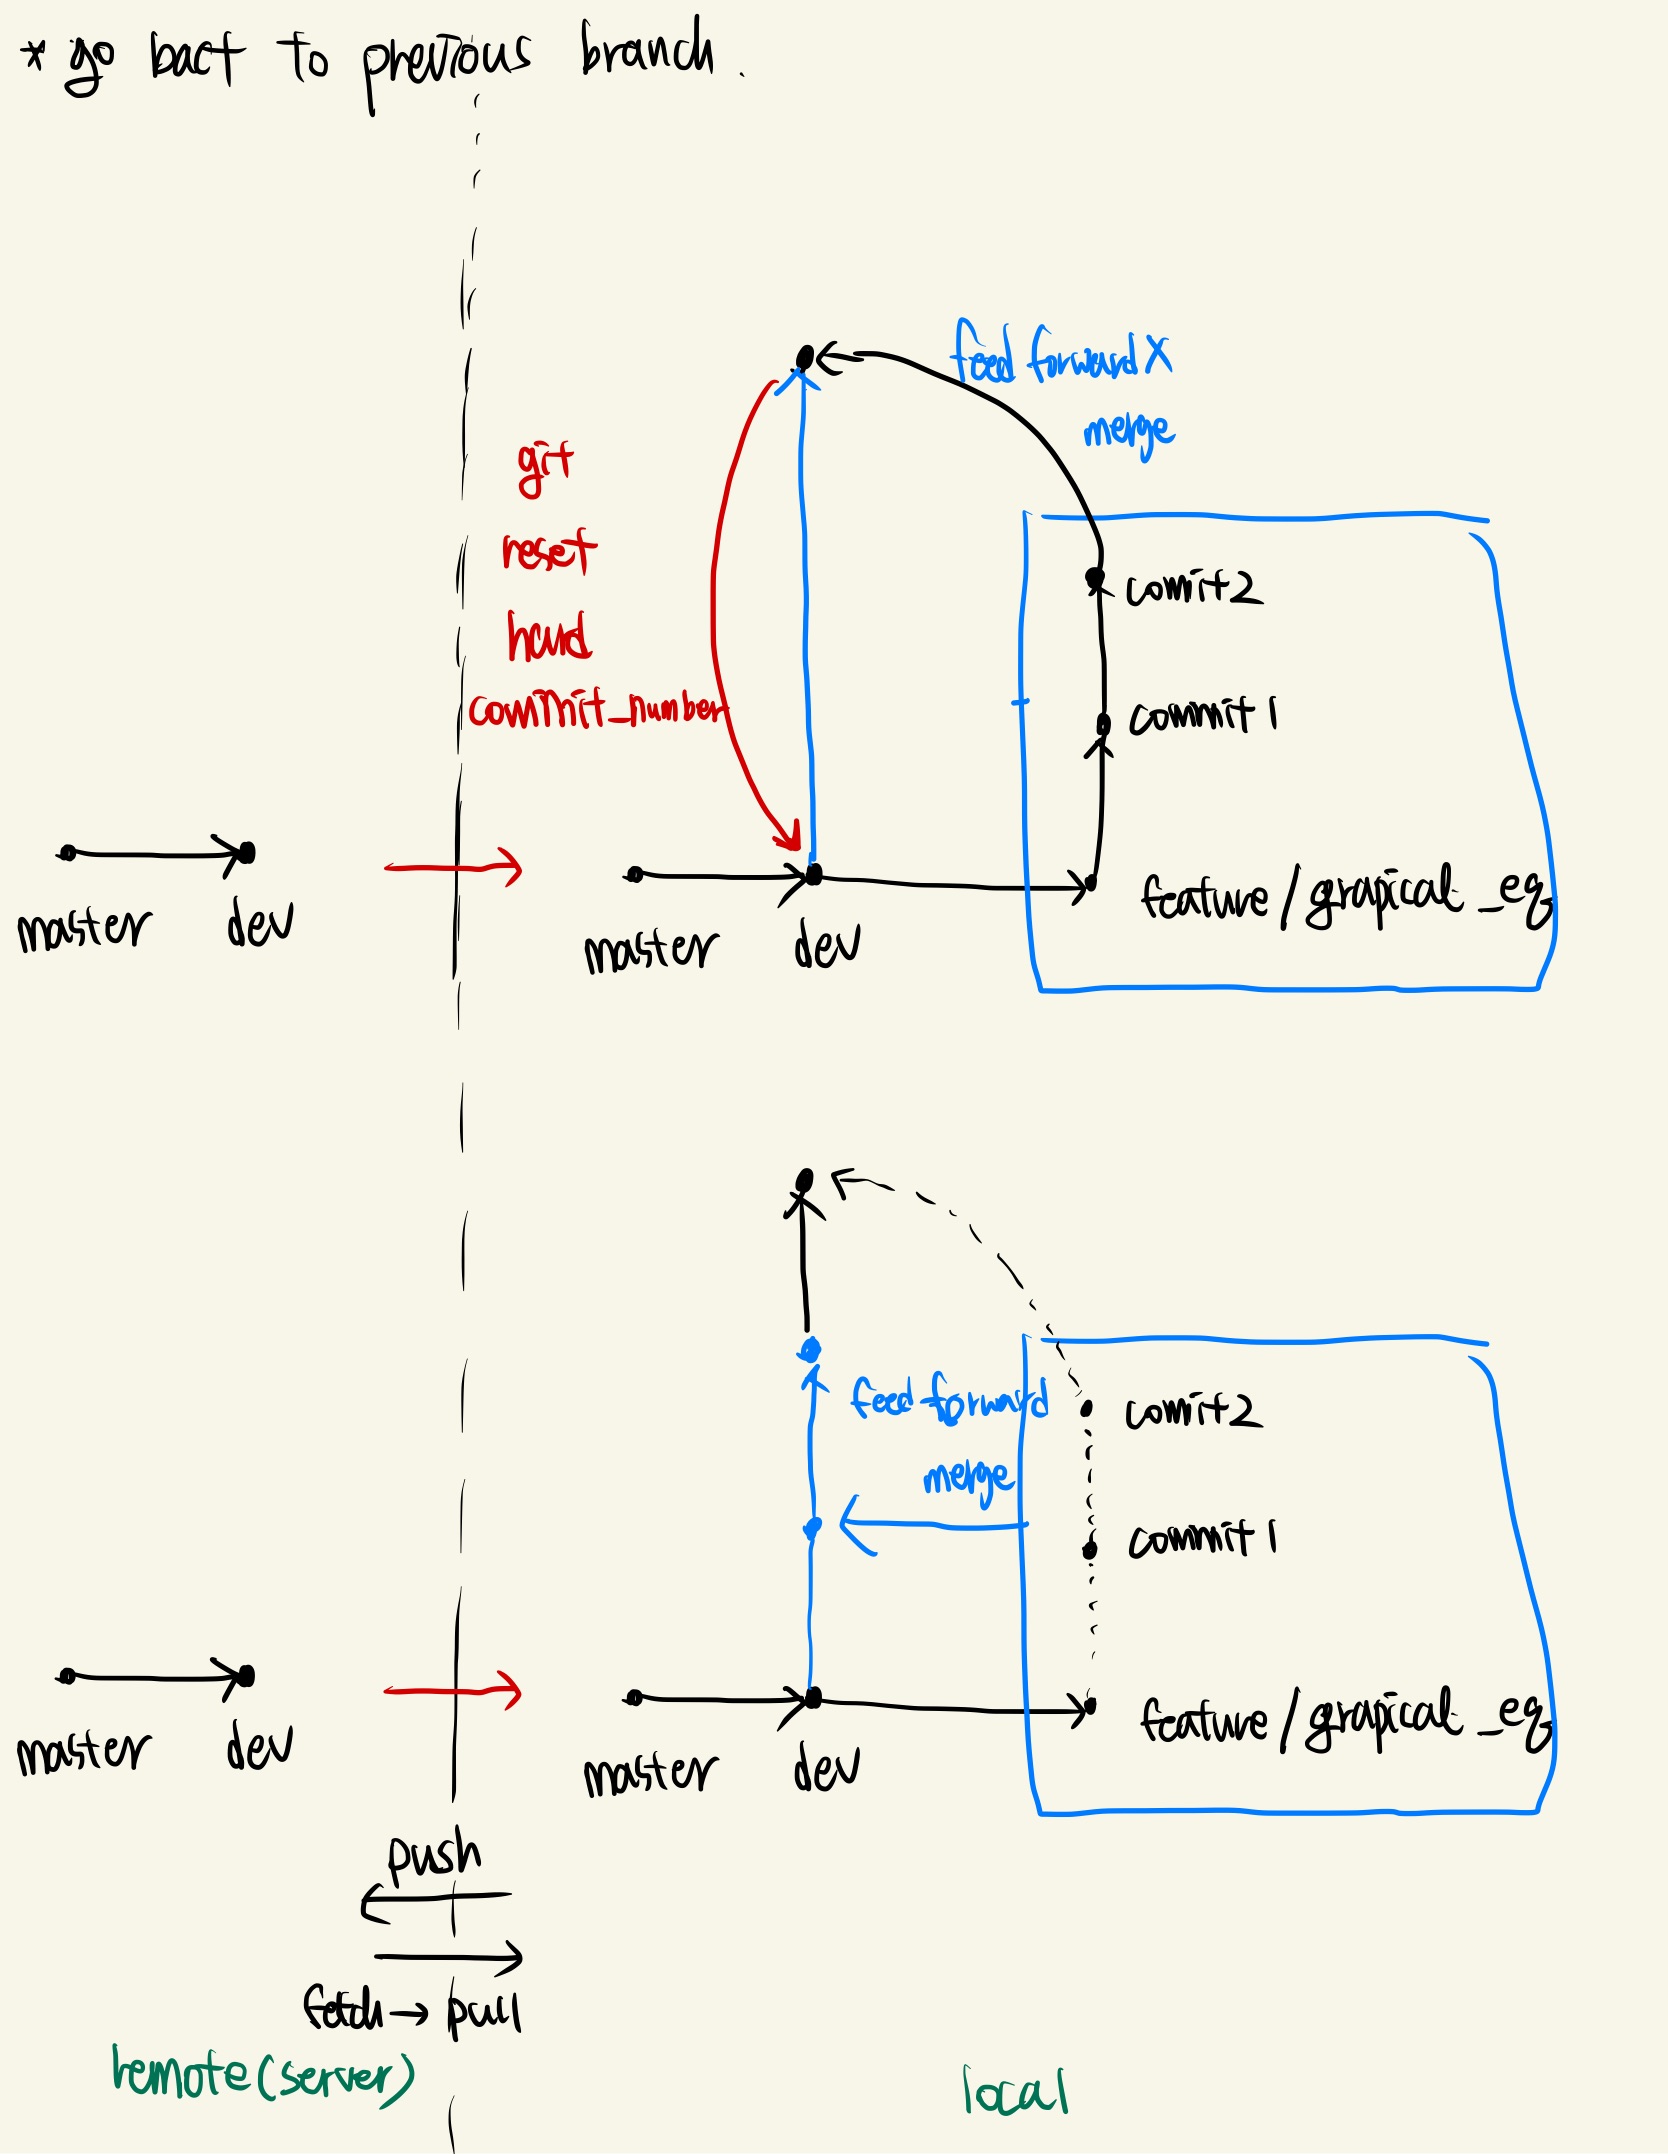 * go bact to previous branch.
feed forward X
merge
git
reset
hard
commit_number
comit2
commit 1
master dev
master dev
feature/grapical_eq
feed forward
merge
comit2
commit 1
master dev
master dev
feature/grapical_eq
push
fetch → pull
remote(server)
local